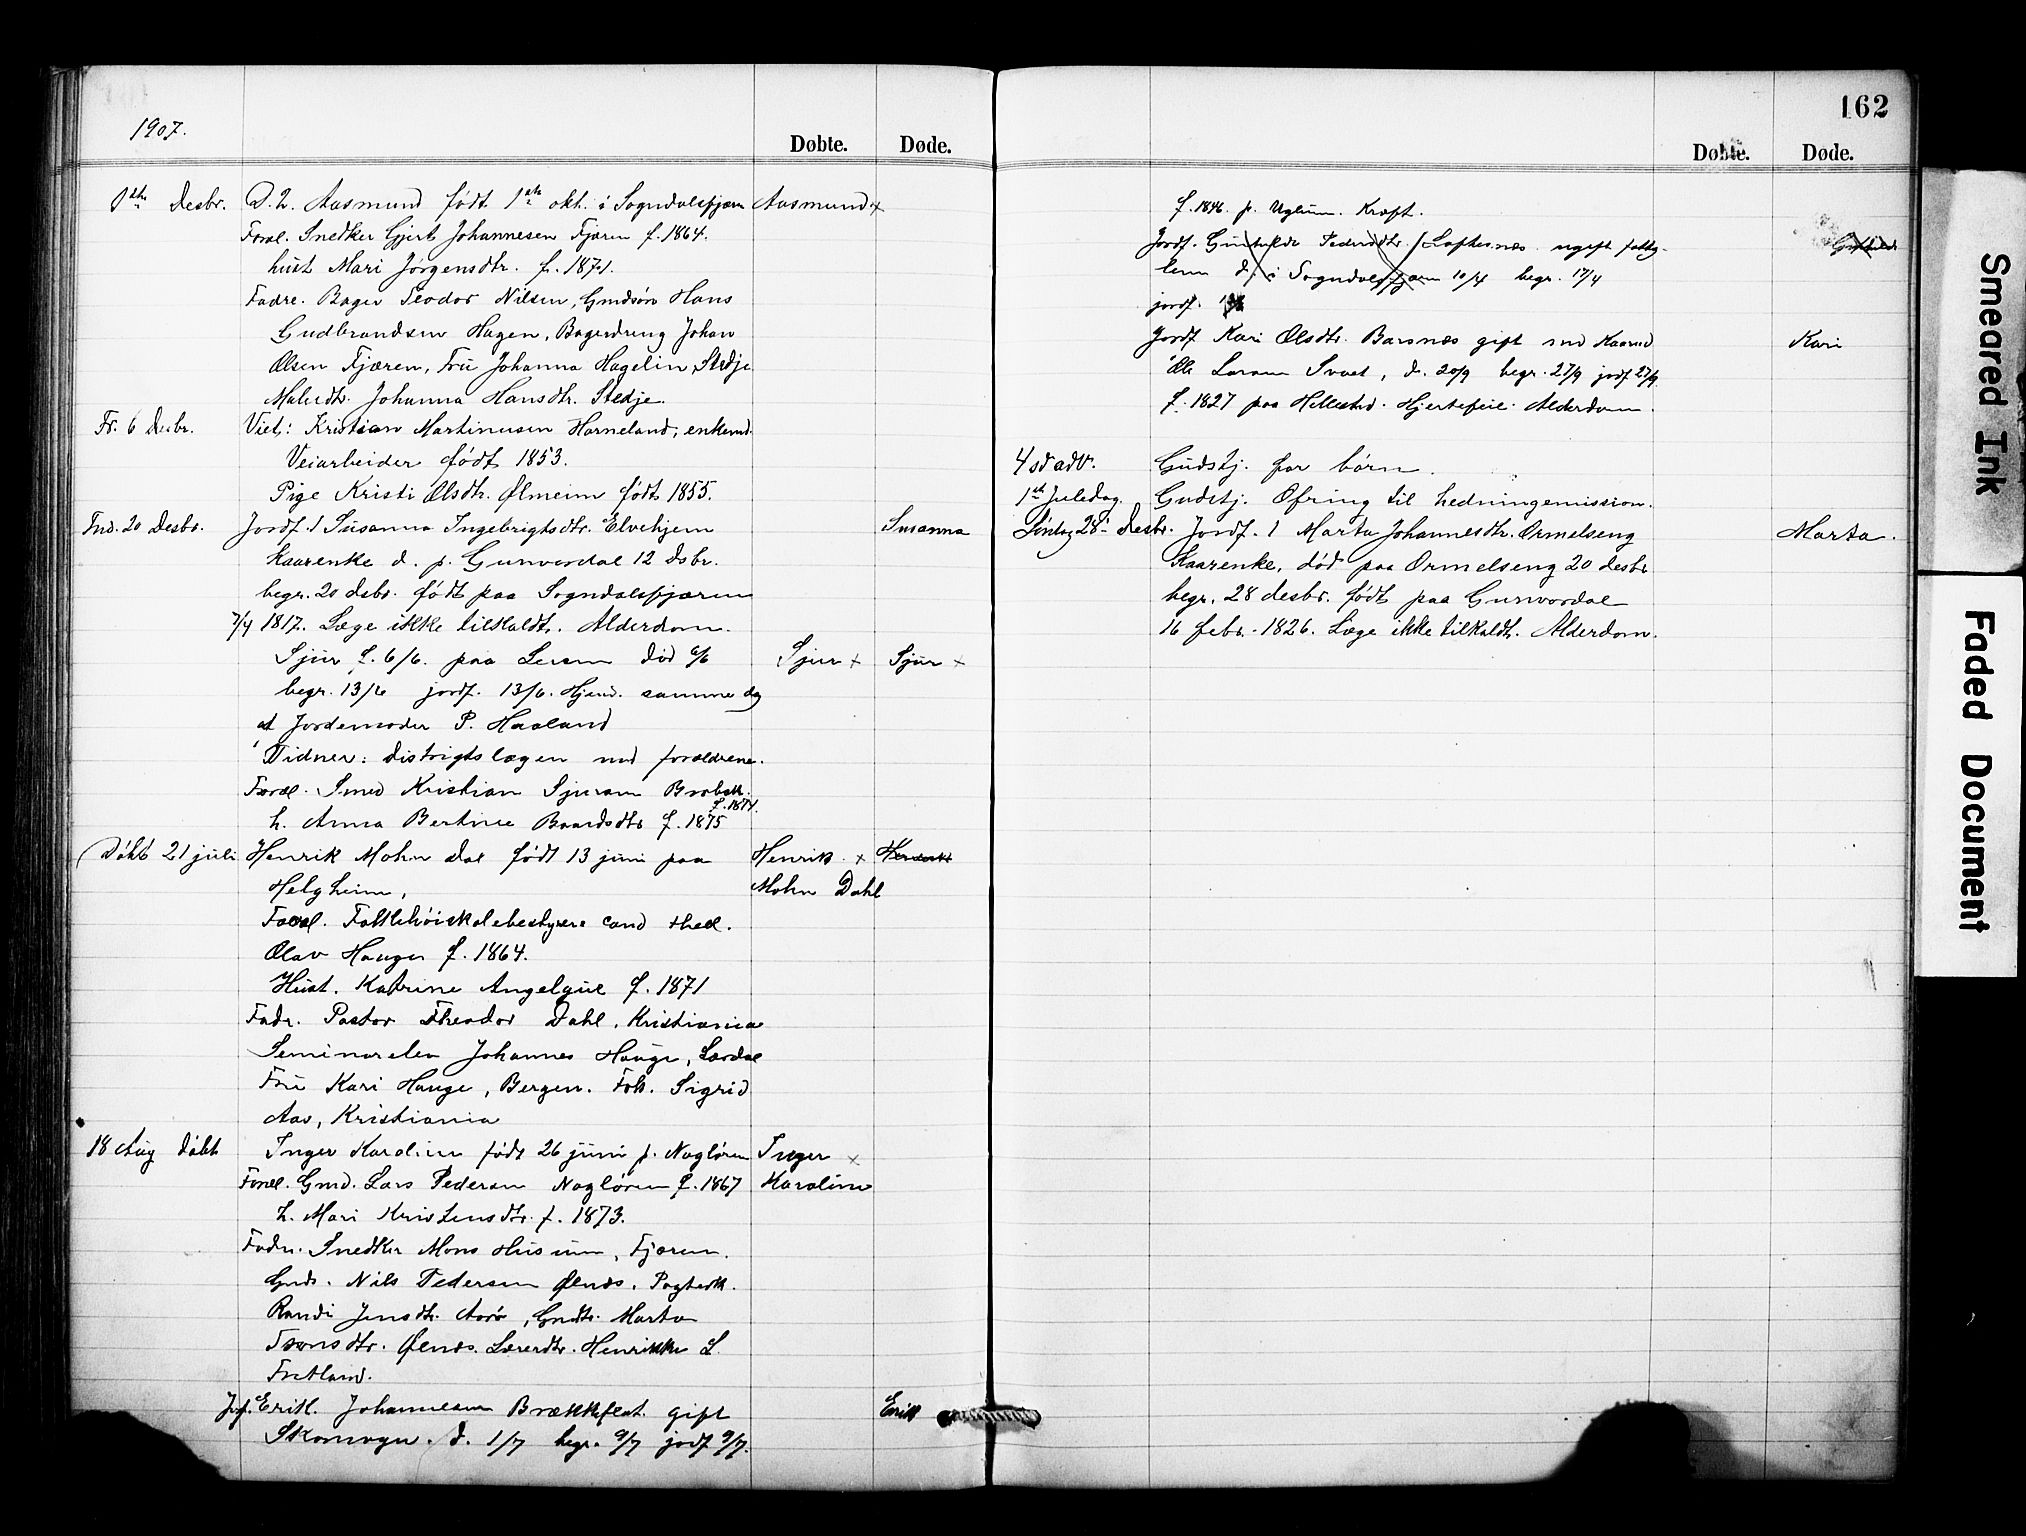 1907.
Døbte. Døde.
1ste Desbr. D. 2. Aasmund født 1ste okt. i Sogndalsfjæren Aasmund x
Foræl. Snedker Gjert Johannesen Fjæren f. 1864.
hust Mari Jørgensdtr. f. 1871.
Fadre. Bager Teodor Nilsen, Gmdsøn Hans
Gudbrandsen Hagen, Bagerdreng Johan
Olsen Fjæren, Fru Johanna Hagelin, Stedje
Johanna Hansdtr. Stedje.
Fr. 6 Desbr. Viet: Kristian Martinusen Horneland, enkemd.
Veiarbeider født 1853.
Pige Kristi Olsdtr. Ølmeim født 1855.
20 Desbr. Jordf. 1 Susanna Ingebrigtsdtr. Elvehjem Susanna
Kaarenke d. p. Gunvordal 12 Dsbr.
begr. 20 dsbr. født paa Sogndalsfjæren
7/4 1817. Læge ikke tilkaldt. Alderdom.
Sjur f. 6/6. paa død 6/6 Sjur x Sjur x
begr. 13/6 jordf. 13/6. Hjemd. samme dag
at Jordemoder P. Haaland
Vidner: distrigtslægen med forældrene.
Foræl. Smed Kristian Sjursen
f. 1874.
h. Anna Bertine Baardsdtr f. 1875
Døbt 21 juli Henrik Mohn Dal født 13 juni paa Henrik x Henrik
Helgheim, Mohn Dahl
Foræl. Folkehøiskolebestyrere cand theol.
Olav Hauge f. 1864.
Hust. Katrine f. 1871
Fadr. Pastor Theodor Dahl, Kristiania
Seminarelev Johannes Hauge, Lærdal
Fru Kari Hauge, Bergen. Frk. Sigrid
Aas, Kristiania
18 Aug Døbt Inger Karoline født 26 juni p. Nagløren Inger x
Foræl. Gmd. Lars Pedersen Nagløren f. 1867 Karoline
h. Mari Kristensdtr. f. 1873.
Fadr. Snedker Mons Husum, Fjæren.
Gmd. Nils Pedersen Ølnes,
Randi Jensdtr. Aarø, Gmdtr. Marta
Ølnes. Lærerdtr. Henrikke L.
Fretland.
Jrf. Erik Johannesen Brækkeflat. gift Erik
d. 1/7 begr. 9/7 jordf 9/7.
162
Døbte. Døde.
f. 1846 p. Uglum. Kræft.
Jordf. Pedersdtr. Loftesnes ugift
lem d. i Sogndalsfjæren 10/4 begr. 17/4
jordf.
Jordf Kari Olsdtr. Barsnes gift med Kaarmd Kari
Ole Larsen d. 20/9 begr. 27/9 jordf 27/9.
f. 1827 paa Hillestad. Hjertefeil. Alderdom.
4 sd adv. Gudstj. for børn.
1ste Juledag. Gudstj. Ofring til hedningemission.
Søndag 28. Desbr. Jordf. 1 Marta Johannesdtr. Ormelseng Marta.
Kaarenke, død paa Ormelseng 20 desbr
begr. 28 desbr. født paa Gunvordal
16 febr. 1826. Læge ikke tilkaldt. Alderdom.
Smeared Ink
Faded Document